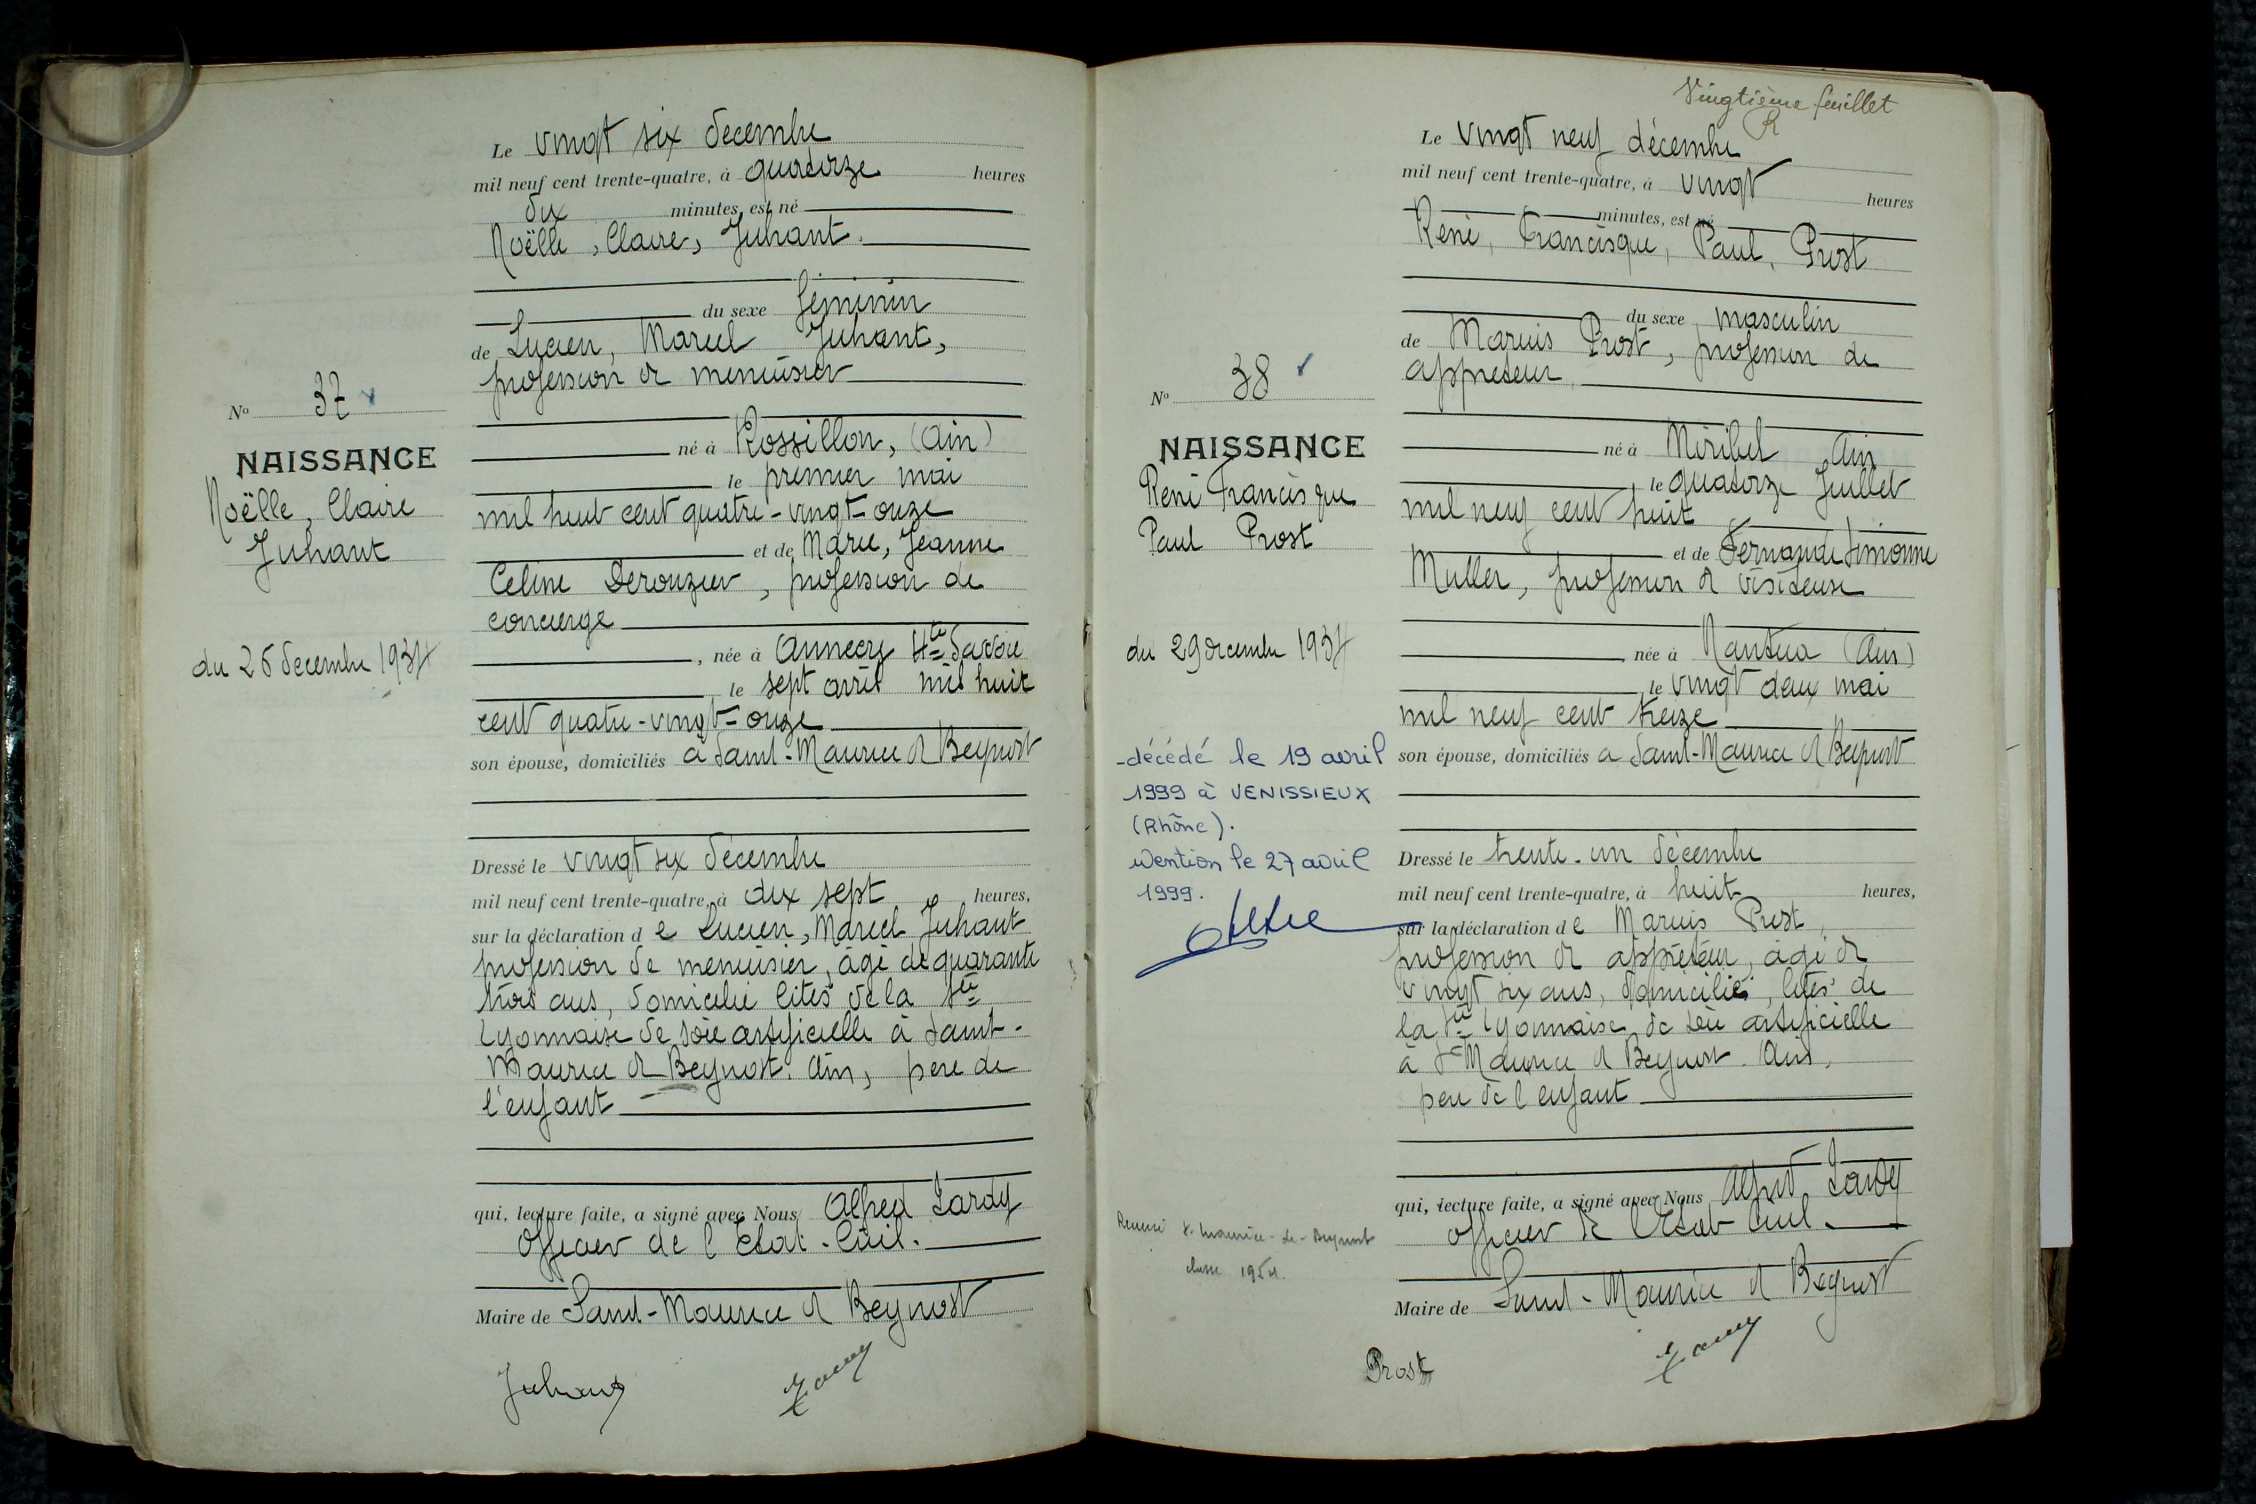 Le vingt six décembre
mil neuf cent trente-quatre, à quatorze heures
dix minutes, est né
Noëlle, Claire, Juhant.
du sexe féminin
de Lucien, Marcel Juhant,
profession de menuisier
né à Rossillon, (Ain)
le premier mai
mil huit cent quatre-vingt-onze
et de Marie, Jeanne
Celine Derouzier, profession de
concierge
, née à Annecy Hte Savoie
, le sept avril mil huit
cent quatre-vingt-onze
son épouse, domiciliés à Saint-Maurice de Beynost
Dressé le vingt six décembre
mil neuf cent trente-quatre, à dix sept heures,
sur la déclaration de Lucien, Marcel Juhant
profession de menuisier, âgé de quarante
trois ans, domicilié cités de la Sté
Lyonnaise de soie artificielle à Saint-
Maurice de Beynost. Ain, père de
l'enfant
qui, lecture faite, a signé avec Nous Alfred Lardy
Officier de l'Etat-Civil.
Maire de Saint-Maurice de Beynost
Juhant
No 37
NAISSANCE
Noëlle, Claire
Juhant
du 26 decembre 1934
Vingtième feuillet
R
Le vingt neuf décembre
mil neuf cent trente-quatre, à vingt heures
minutes, est né
René, Francisque, Paul, Prost
du sexe masculin
de Marius Prost, profession de
appreteur,
né à Miribel Ain
le quatorze Juillet
mil neuf cent huit
et de Fernande Simonne
Muller, profession de visiteuse
, née à Nantua (Ain)
, le vingt deux mai
mil neuf cent treize
son épouse, domiciliés à Saint-Maurice de Beynost
Dressé le trente-un décembre
mil neuf cent trente-quatre, à huit heures,
sur la déclaration de Marius Prost,
profession de appréteur, âgé de
vingt six ans, domicilié, cités de
la Sté Lyonnaise de soie artificielle
à St Maurice de Beynost. Ain,
père de l'enfant
qui, lecture faite, a signé avec Nous Alfred Lardy
officier de l'Etat Civil.
Maire de Saint-Maurice de Beynost
Prost
No 38
NAISSANCE
René Francisque
Paul Prost
du 29 decembre 1934
-décédé le 19 avril
1999 à VENISSIEUX
(Rhône).
Mention le 27 avril
1999.
St-Maurice-de-Beynost
classe 1954.